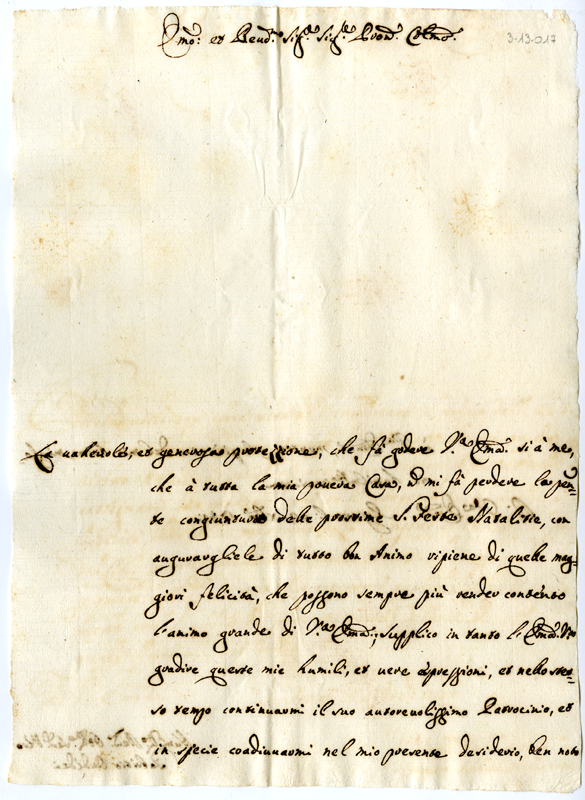 Emo: et Reud.º Sig.r Sig.r Pron. Colmo.
3-13-017
La ualeuole, et generosa protezzione, che fà godere V.a Em.a si à me,
che à tutta la mia pouera Casa, mi fà perdere le pñ=
ti congiunture delle prossime S. Feste Natalitie, con
augurargliele di tutto bon Animo ripiene di quelle mag=
giori felicità, che possono sempre più render contento
l'animo grande di V.a Em.a; supplico in tanto l'Em.a V.a
gradire queste mie humili, et uere espressioni, et nello stes=
so tempo continuarmi il suo autoreuolissimo Patrocinio, et
in specie coadiuuarmi nel mio presente desiderio, ben noto